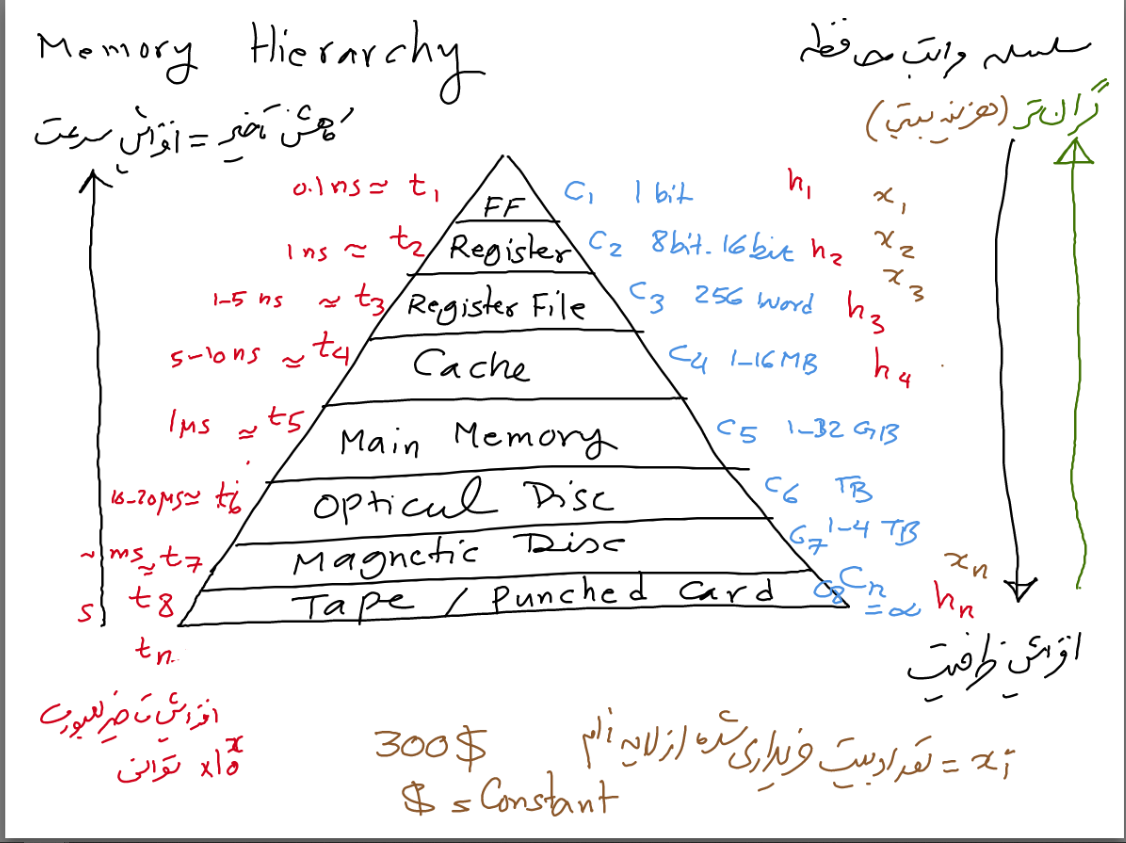 Memory Hierarchy
سلسله مراتب حافظه
کاهش تأخیر = افزایش سرعت
گران‌تر (هزینه بیتی)
0.1ns ≈ t1 FF C1 1 bit h1 x1
1ns ≈ t2 Register C2 8bit-16bit h2 x2
1-5 ns ≈ t3 Register File C3 256 word h3 x3
5-10ns ≈ t4 Cache C4 1-16MB h4
1μs ≈ t5 Main Memory C5 1-32 GB
≈ t6 Optical Disc C6 TB
~ms ≈ t7 Magnetic Disc C7 1-4 TB
s t8 Tape / Punched Card C8 Cn = ∞ hn xn
tn
افزایش ظرفیت
افزایش تأخیر بصورت
توانی ×10^x
300$
$ = Constant
xi = تعداد بیت خریداری شده از لایه iام